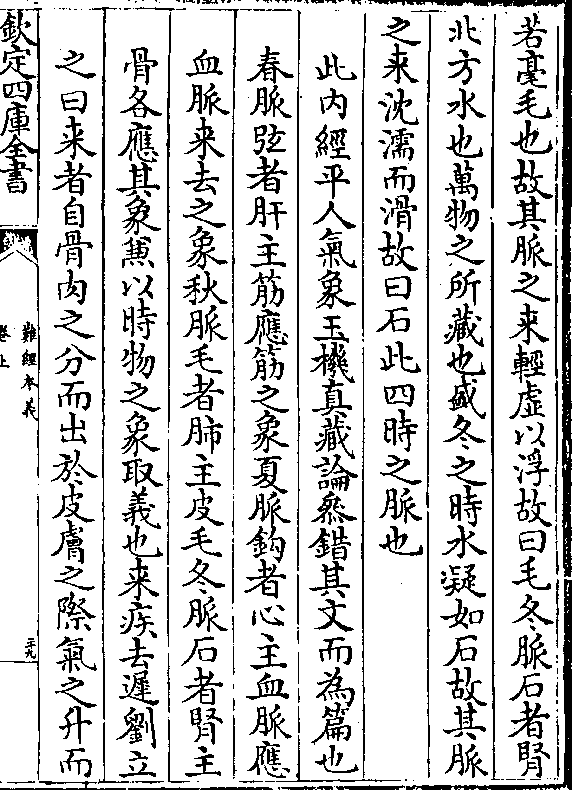 若毫毛也故其脈之来輕虛以浮故曰毛冬脈石者腎
北方水也萬物之所藏也盛冬之時水凝如石故其脈
之来沈濡而滑故曰石此四時之脈也
此内經平人氣象玉機真藏論叅錯其文而為篇也
春脈弦者肝主筋應筋之象夏脈鈎者心主血脈應
血脈来去之象秋脈毛者肺主皮毛冬脈石者腎主
骨各應其象兼以時物之象取義也来疾去遲劉立
之曰来者自骨肉之分而出於皮膚之際氣之升而
欽定四庫全書
難經本義
卷上
二十九